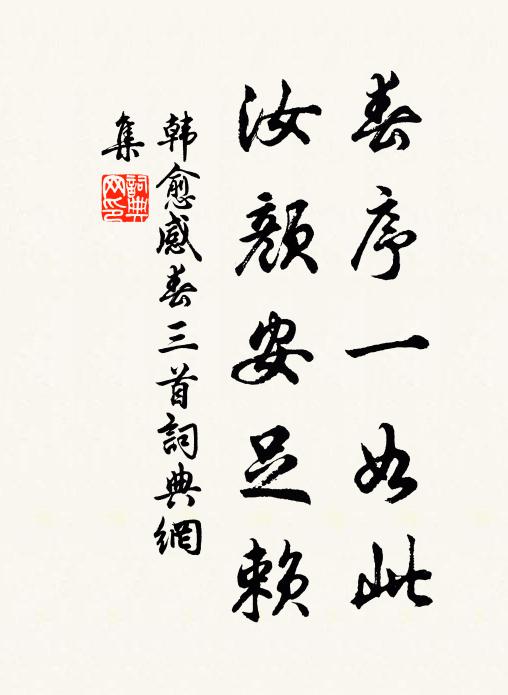 春序一如此
汝顏安足賴
韓愈感春三首詞典網
集
詞典
网印